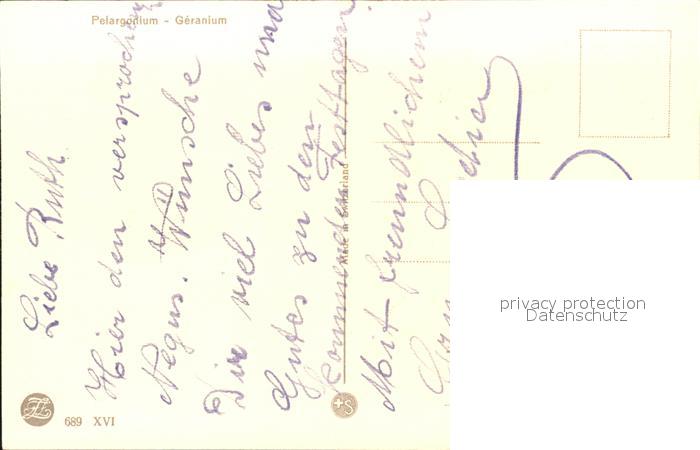 Pelargonium - Géranium
Liebe Ruth
Hier den versprochenen
Negus. Wünsche
Dir viel Liebes und
Gutes zu den
kommenden Festtagen.
Mit freundlichem
Made in Switzerland
689 XVI
+S
privacy protection
Datenschutz